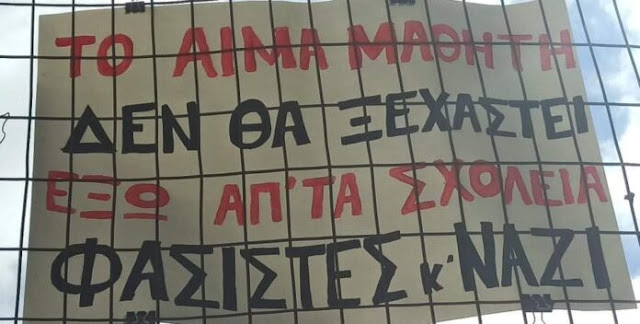 ΤΟ ΑΙΜΑ ΜΑΘΗΤΗ
ΔΕΝ ΘΑ ΞΕΧΑΣΤΕΙ
ΕΞΩ ΑΠ'ΤΑ ΣΧΟΛΕΙΑ
ΦΑΣΙΣΤΕΣ Κ' ΝΑΖΙ